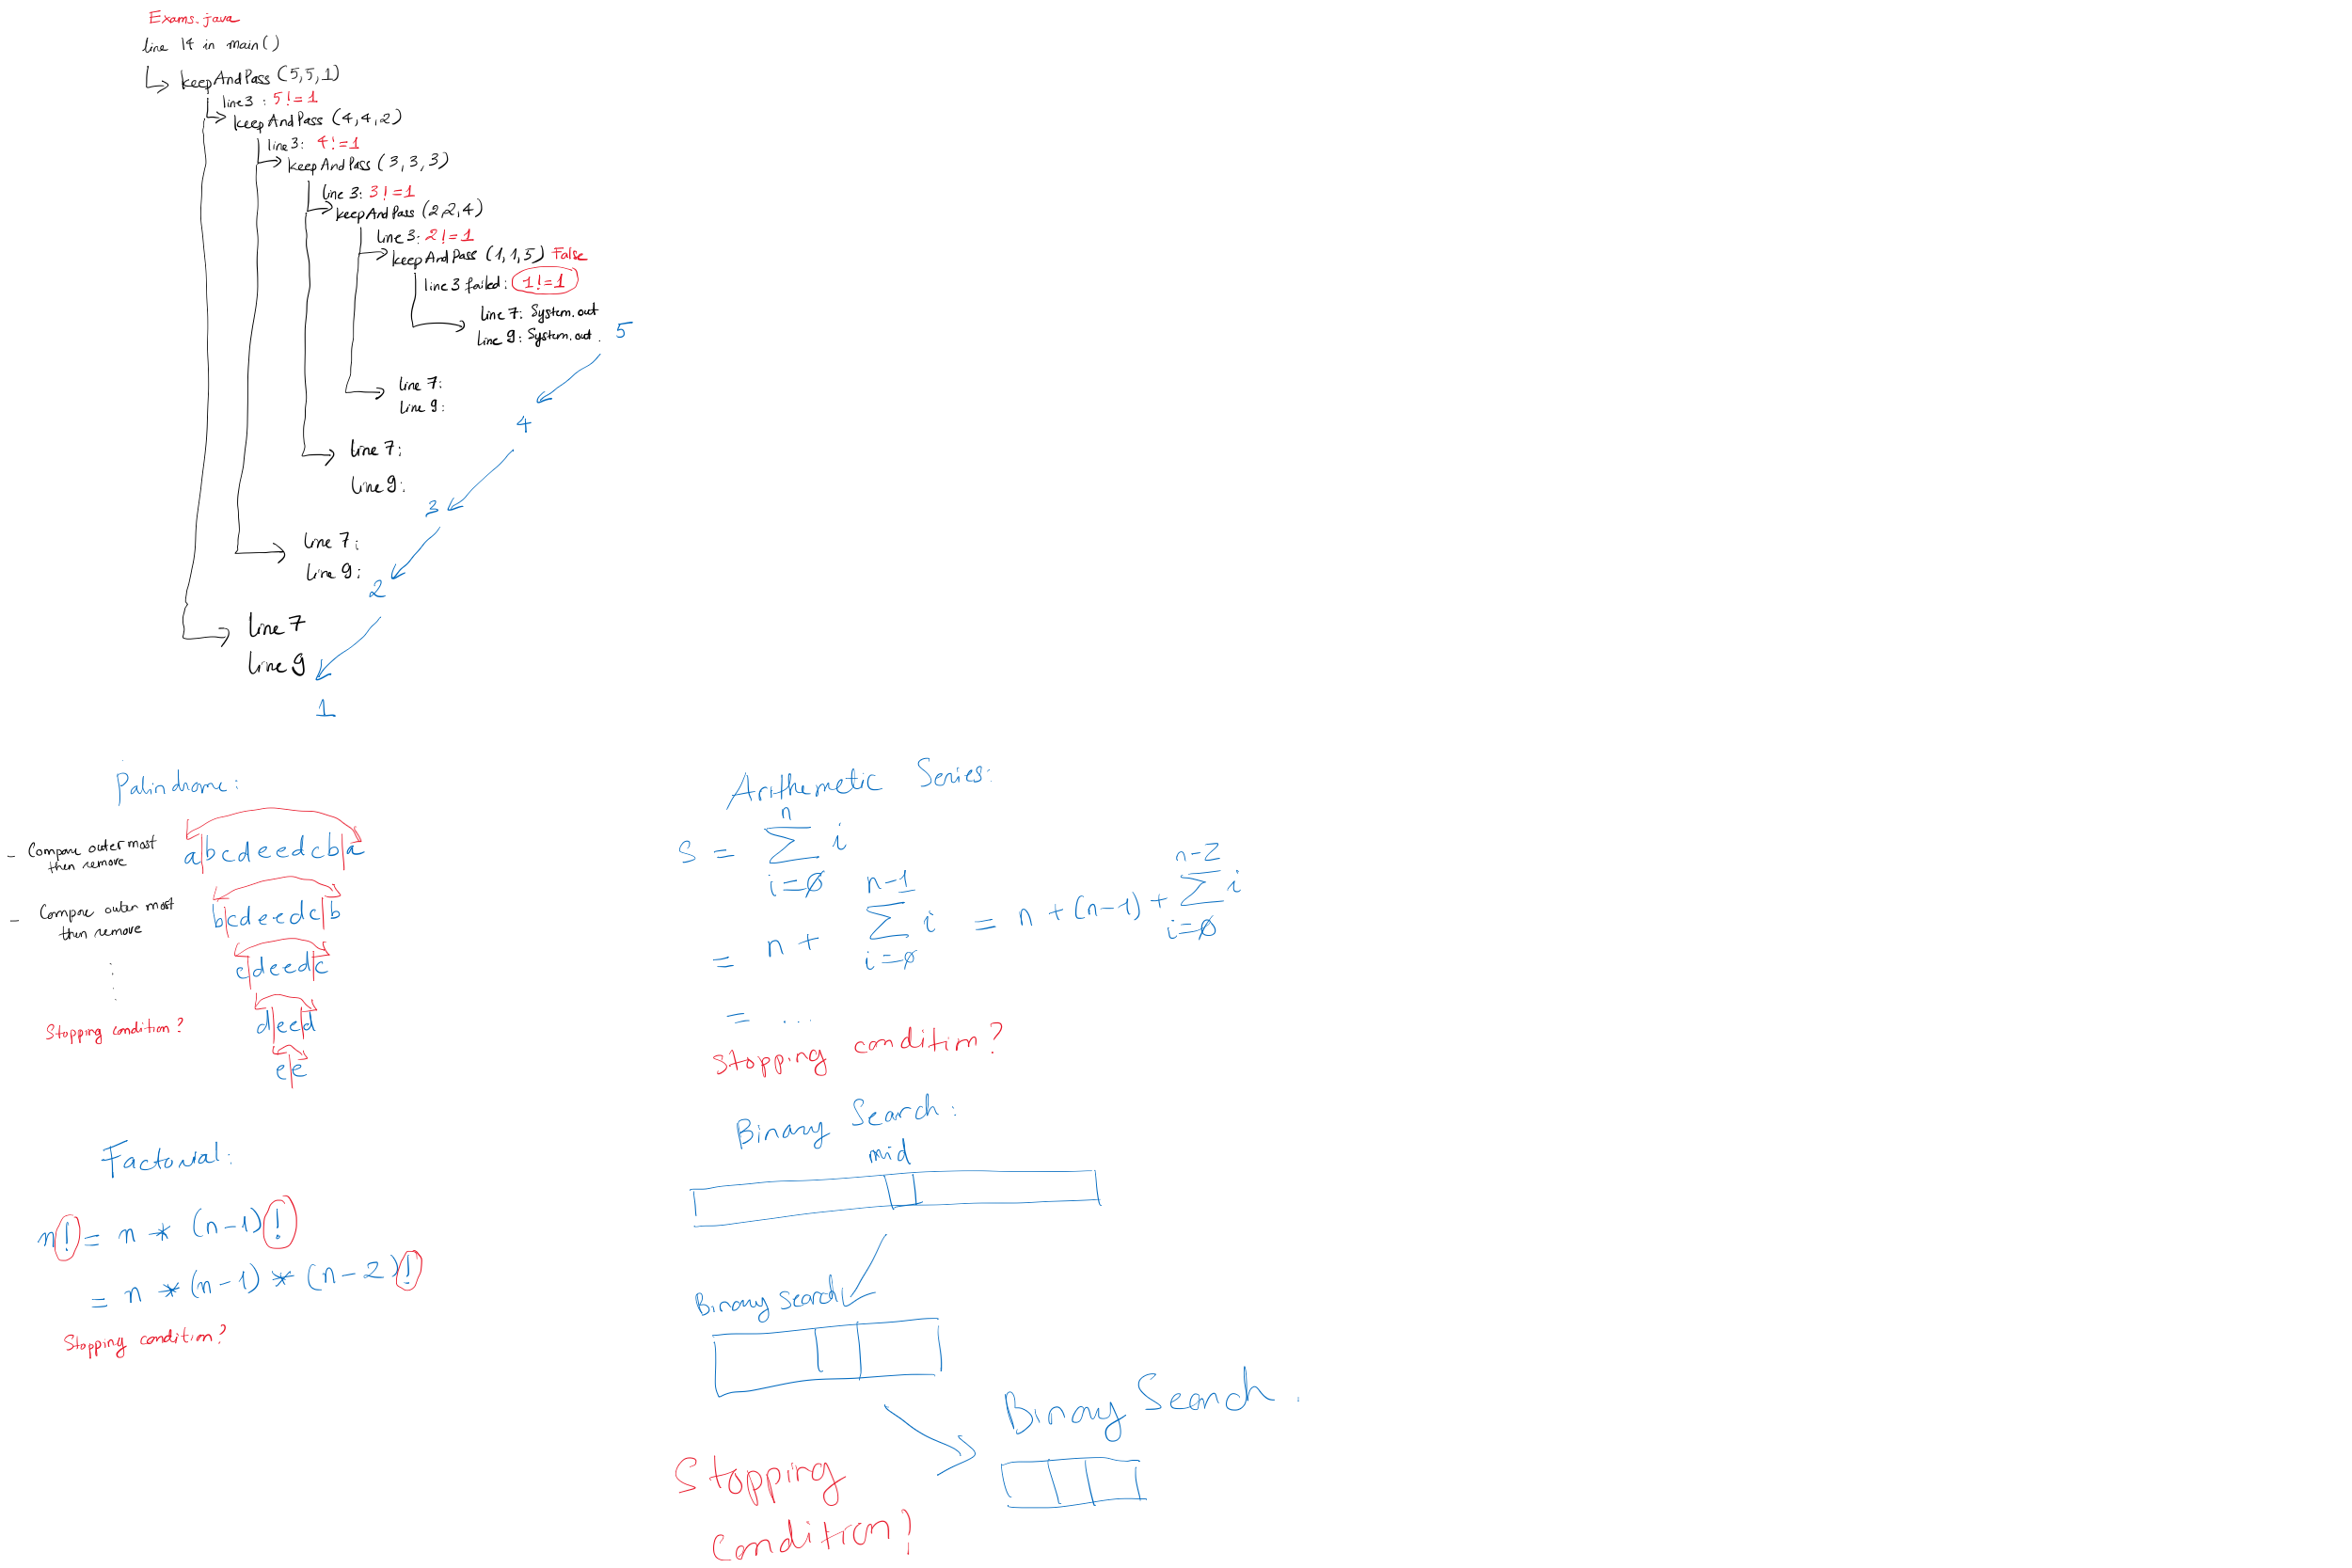 Exams.java
line 14 in main()
keepAndPass (5,5,1)
line3 : 5!=1
keepAndPass (4,4,2)
line3: 4!=1
keepAndPass (3,3,3)
line 3: 3!=1
keepAndPass (2,2,4)
line3: 2!=1
keepAndPass (1,1,5) False
line 3 failed: 1!=1
line 7: System.out
line 9: System.out.
5
line 7:
line 9:
4
line 7:
line 9:
3
line 7:
line 9:
2
line 7
line 9
1
Palindrome:
- Compare outer most
then remove
a|bcdeedcb|a
- Compare outer most
then remove
b|cdeedc|b
c|deed|c
Stopping condition?
d|ee|d
e|e
Factorial:
n! = n * (n-1)!
= n * (n-1) * (n-2)!
Stopping condition?
Arithemetic Series:
S = n ∑ i=0 i
= n + n-1 ∑ i=0 i = n + (n-1) + n-2 ∑ i=0 i
= ...
Stopping condition?
Binary Search:
mid
Binary Search
Binary Search.
Stopping
condition?